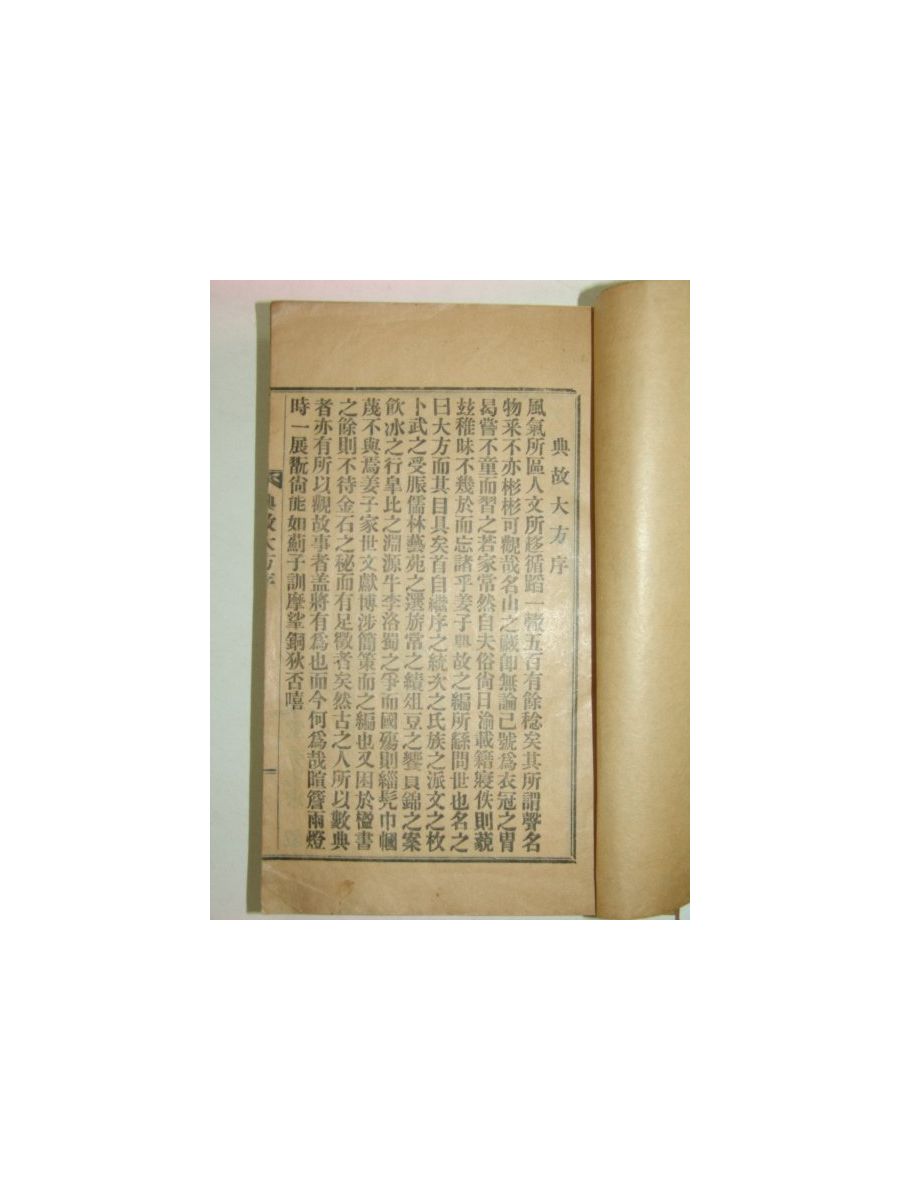 典故大方序
風氣所區人文所趍循蹈一轍五百有餘稔矣其所謂聲名
物采不亦彬彬可觀哉名山之藏卽無論已號爲衣冠之胄
曷嘗不童而習之若家常然自夫俗尙日渝載籍寢佚則藐
玆稚昧不幾於而忘諸乎姜子典故之編所繇問世也名之
曰大方而其目具矣首自繼序之統次之氏族之派文之枚
卜武之受脤儒林藝苑之選旂常之績俎豆之饗貝錦之案
飮冰之行皐比之淵源牛李洛蜀之爭而國殤則緇髡巾幗
蔑不與焉姜子家世文獻博涉簡策而之編也又困於檻書
之餘則不待金石之秘而有足徵者矣然古之人所以數典
者亦有所以觀故事者盖將有爲也而今何爲哉暄簷雨燈
時一展翫尙能如薊子訓摩挲銅狄否嘻
典故大方序
一